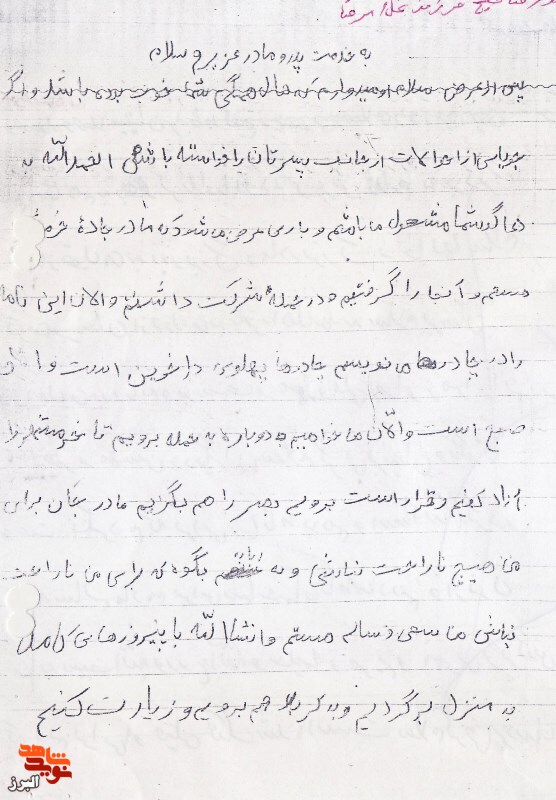 به خدمت پدر و مادر عزیزم سلام
پس از عرض سلام امیدوارم که حال همگی شما خوب بوده باشد و اگر
جویای از احوالات از جانب پسرتان را خواسته باشی الحمدالله به
دعاگو شما مشغول می باشم و باری عرض می شود که ما در جاده خرمش
هستیم و آنجا را گرفتیم و در حمله شرکت داشتم و الان این نامه
را در چادرها می نویسم چادرها پهلوی دارخوین است و
صبح است و الان می خواهیم دوباره به حمله برویم تا خرمشهر را
آزاد کنیم و قرار است برویم بصره را هم بگیریم مادر جان برای
من هیچ ناراحت نباشی و به بگو که برای من ناراحت
نباش ما سعی و سالم هستم و انشاالله با پیروزهای کامل
به منزل برگردیم و به کربلا هم برویم و زیارت کنیم
شاهد
نوید
البرز